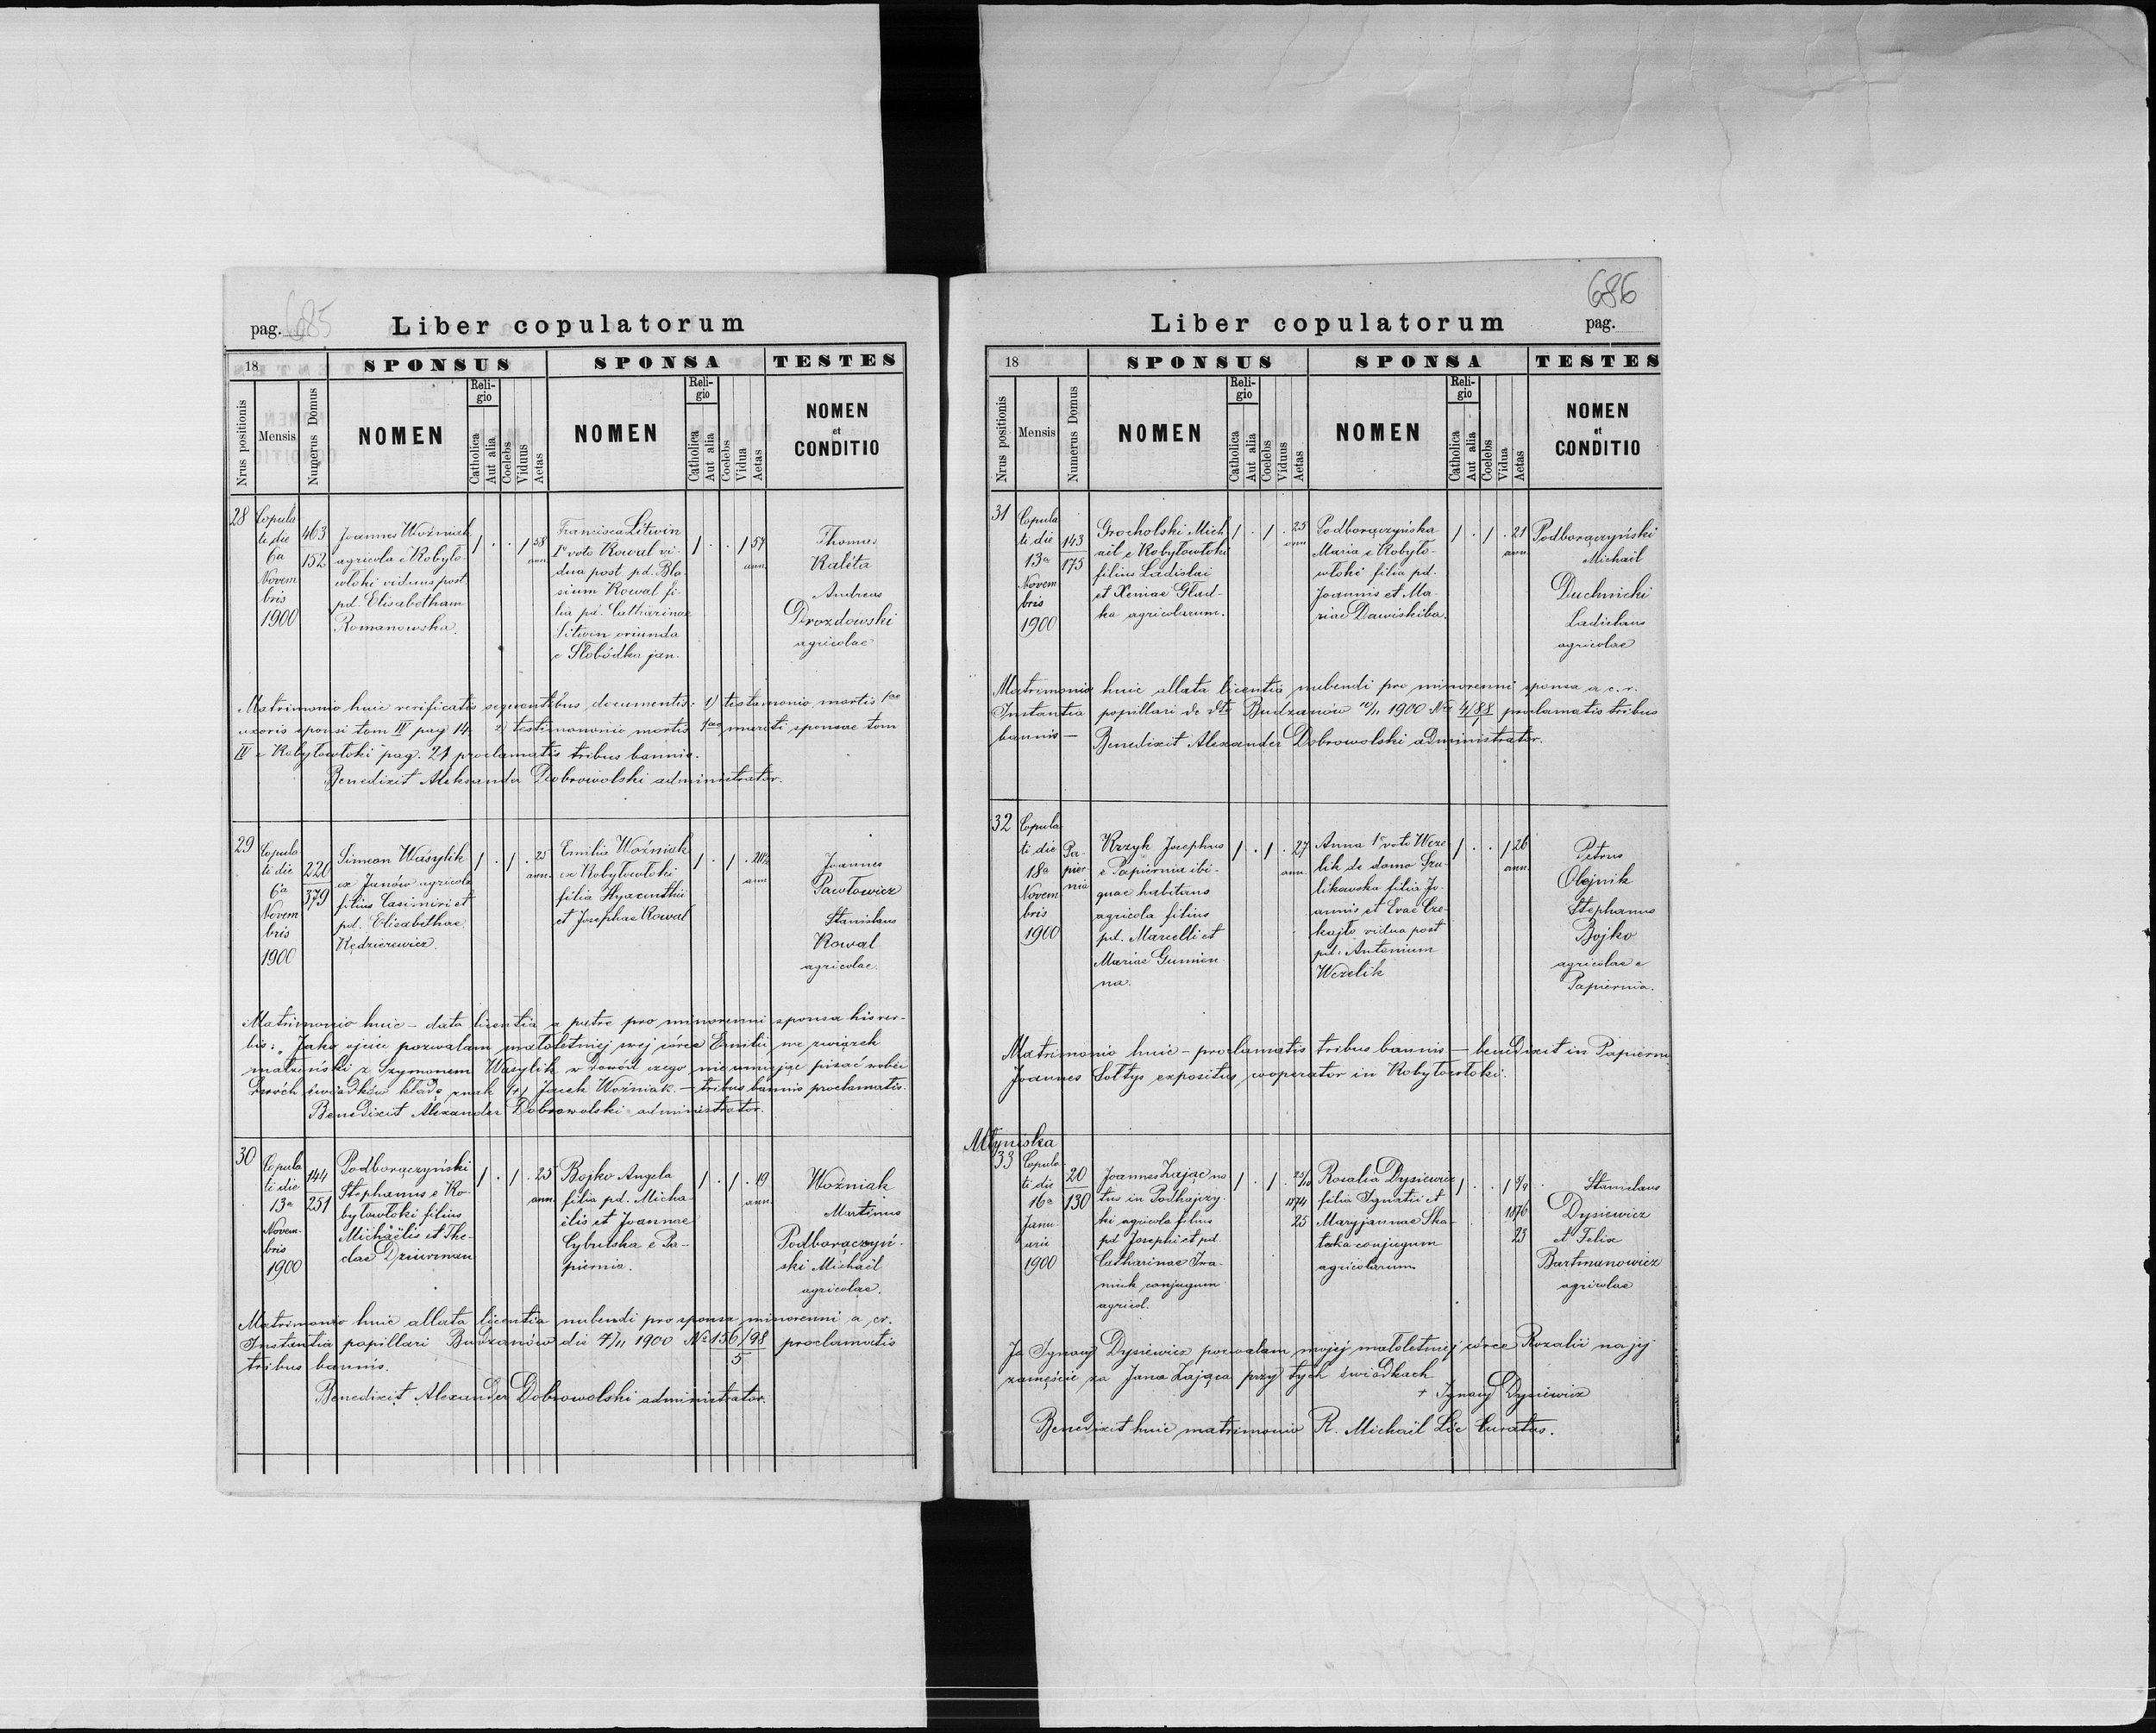 pag. 685
Liber copulatorum
18
SPONSUS
SPONSA
TESTES
Nrus positionis
Mensis
Numerus Domus
NOMEN
Religio
Catholica
Aut alia
Coelebs
Viduus
Aetas
NOMEN
Religio
Catholica
Aut alia
Coelebs
Vidua
Aetas
NOMEN
et
CONDITIO
28
Copula
ti die
6a
Novem
bris
1900
463
152
Joannes Woźniak
agricola e Kobyło
włoki viduus post
pd. Elisabetham
Romanowska.
1 . . 1 58
ann.
Francisca Litwin
1o voto Kowal vi-
dua post pd. Bla-
sium Kowal fi-
lia pd. Catharinae
Litwin oriunda
e Slobódka jan.
1 . . 1 57
ann.
Thomas
Kaleta
Andreas
Drozdowski
agricolae
Matrimonio huic verificatis sequentibus documentis: 1) testamonio mortis 1ae
uxoris sponsi tom IV pag 14. 2) testimononio mortis mariti sponsae tom
IV e Kobyłowłoki pag. 21 proclamatis tribus bannis.
Benedixit Aleksander Dobrowolski administrator.
29
Copula
ti die
6a
Novem
bris
1900
220
379
Simeon Wasylik
ex Janów agricola
filius Casimiri et
pd. Elisabethae
Kędzierewicz.
1 . 1 . 25
ann.
Emilia Woźniak
ex Kobyłowłoki
filia Hyacinthii
et Josephae Kowal
1 . 1 . 20½
ann
Joannes
Pawłowicz
Stanislaus
Kowal
agricolae.
Matrimonio huic – data licentia a patre pro minorenni sponsa his ver-
bis: „Jako ojciec pozwalam małoletniej swej córce Emilii na związek
małżeński z Szymonem Wasylik w dowód czego nie umiejąc pisać wobec
dwóch świadków kładę znak (+) Jacek Woźniak. – tribus bannis proclamatis.
Benedixit Alexander Dobrowolski administrator.
30
Copula
ti die
13a
Novem-
bris
1900
144
251
Podborączyński
Stephanus e Ko-
byłowłoki filius
Michaëlis et The-
clae Dziurman
1 . 1 . 25
ann.
Bojko Angela
filia pd. Micha-
ëlis et Joannae
Cybulska e Pa-
piernia.
1 . 1 . 19
ann.
Woźniak
Martinus
Podborączyń-
ski Michaël
agricolae.
Matrimonio huic allata licentia nubendi pro sponsa minorenni a cr.
Instantia papillari Budzanów die 7/11 1900 No 156/98 proclamatis
5
tribus bannis.
Benedixit Alexander Dobrowolski administrator.
686
Liber copulatorum
pag.
18
SPONSUS
SPONSA
TESTES
Nrus positionis
Mensis
Numerus Domus
NOMEN
Religio
Catholica
Aut alia
Coelebs
Viduus
Aetas
NOMEN
Religio
Catholica
Aut alia
Coelebs
Vidua
Aetas
NOMEN
et
CONDITIO
31
Copula
ti die
13a
Novem
bris
1900
143
175
Grocholski Mich
ail e Kobyłowłoki
filius Ladislai
et Xeniae Glad-
ka agricolarum.
1 . 1 . 25
ann
Podborączyńska
Maria e Kobyło-
włoki filia pd.
Joannis et Ma-
riae Dawiskiba.
1 . 1 . 21
ann.
Podborączyński
Michaël
Duchnicki
Ladislaus
agricolae
Matrimonio huic allata licentia nubendi pro minorenni sponsa a c.r.
Instantia popillari de dto Budzanów 10/11 1900 Nro 4/88 proclamatis tribus
bannis – Benedixit Alexander Dobrowolski administrator.
32
Copula
ti die
18a
Novem
bris
1900
Pa-
pier
nia
Krzyk Josephus
e Papiernia ibi-
quae habitans
agricola filius
pd. Marcelli et
Mariae Gumien-
na.
1 . 1 . 27
ann
Anna 1o voti Weze
lik de domo Szu-
likowska filia Jo-
annis et Evae Cze-
kajło vidua post
pd. Antonium
Wezelik
1 . . 1 26
ann.
Petrus
Olejnik
Stephanus
Bojko
agricolae e
Papiernia.
Matrimonio huic – proclamatis tribus bannis – benedixit in Papiernia
Joannes Sołtys expositus cooperator in Kobyłowłoki.
Młyniska
33
Copula-
ti die
16a
Janu-
arii
1900
20
130
Joannes Zając na
tus in Podhajczy-
ki agricola filius
pd Josephi et pd.
Catharinae Iwa-
niuk conjugum
agricol.
1 . 1 . 25/10
1874
25
Rosalia Dysiewicz
filia Ignatii et
Maryjannae Ska-
łecka conjugum
agricolarum
1 . . 1 5/9
1876
23
Stanislaus
Dysiewicz
et Felix
Bartmanowicz
agricolae
Ja Ignacy Dysiewicz pozwalam mojej małoletniej córce Rozalii na jej
zamęście za Jana Zająca przy tych świadkach
+ Ignacy Dysiewicz
Benedixit huic matrimonio R. Michaël Lic Curatus.